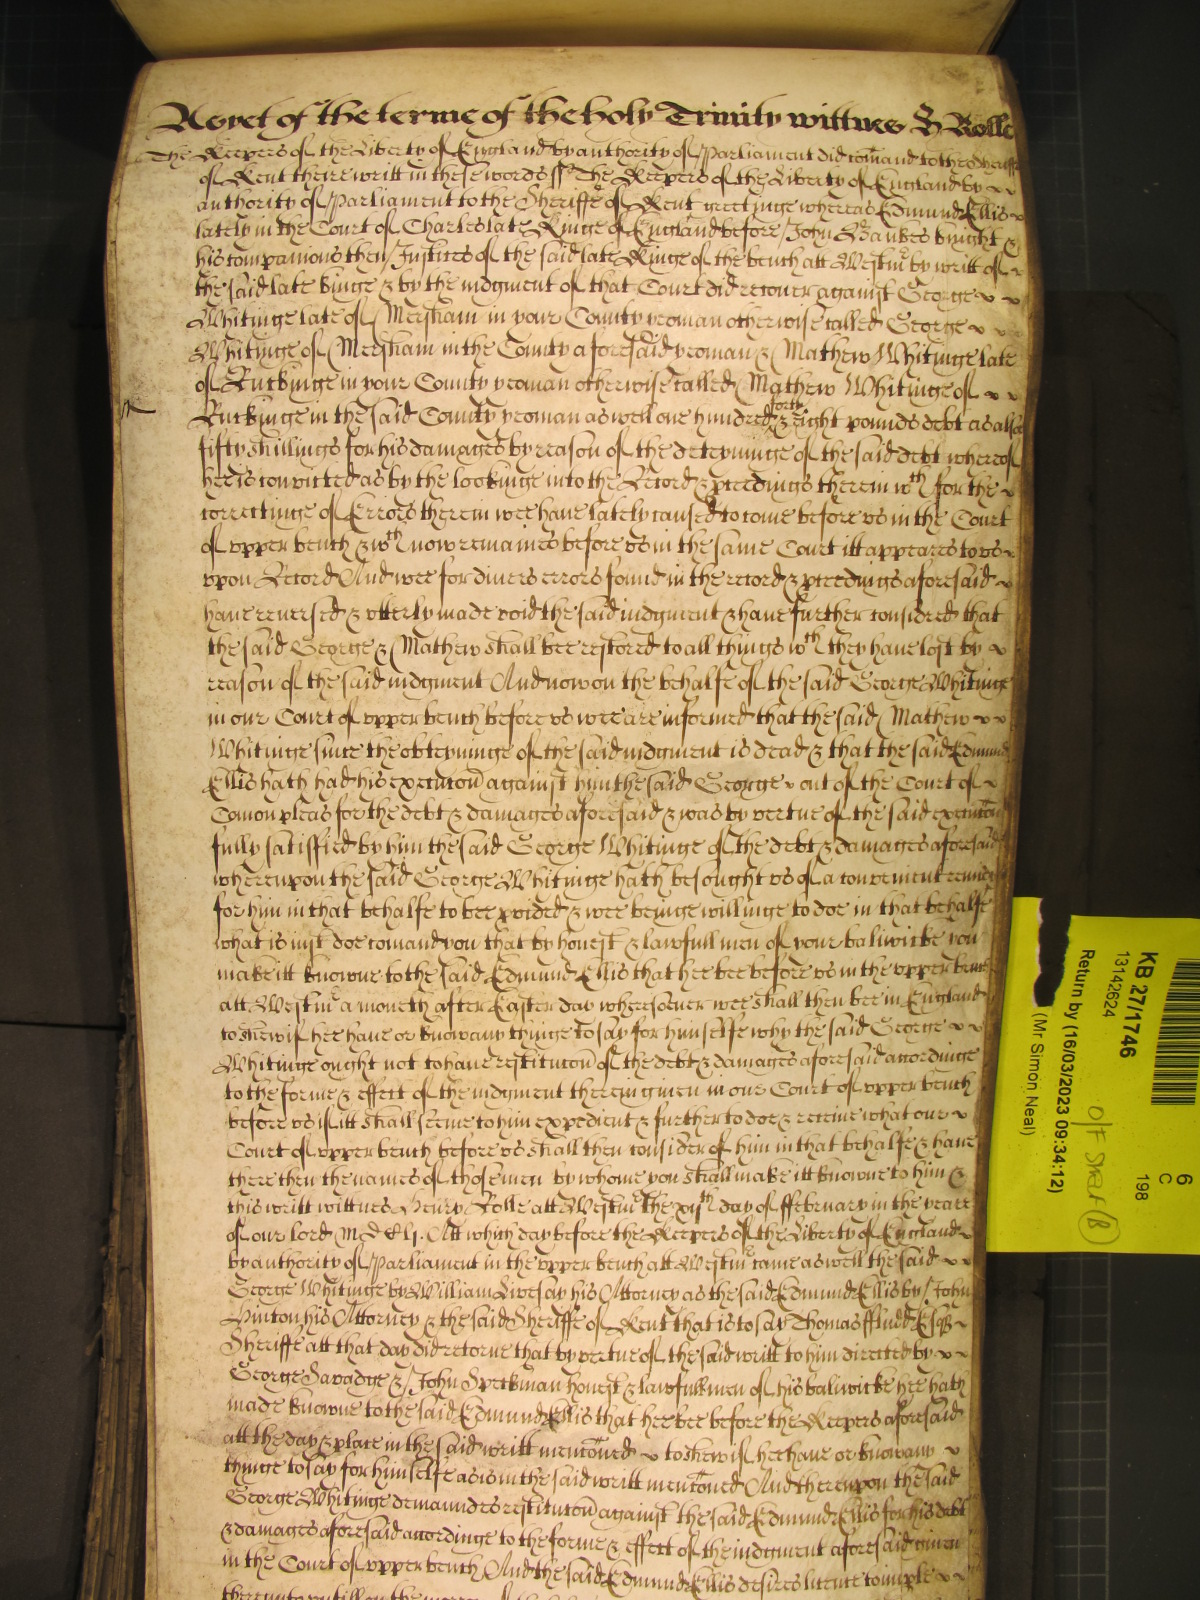 Asyet of the terme of the holy Trinity wittnes H Rolle
The Keepers of the Liberty of England by authority of Parliament did comand to the Sheriffe
of Kent theire writt in these words ss The Keepers of the Liberty of England by
authority of Parliament to the Sheriffe of Kent greetinge whereas Edmund Ellis
lately in the Court of Charles late Kinge of England before John Bankes knight &
his companions then Justices of the said late Kinge of the bench att Westm by writt of
the said late kinge & by the iudgment of that Court did recouer against George
Whitinge late of Mersham in your County yeoman otherwise called George
Whitinge of Mersham in the County aforesaid yeoman & Mathew Whitinge late
of Ruckinge in your County yeoman otherwise called Mathew Whitinge of
Ruckinge in the said County yeoman aswell one hundred forty & eight pounds debt as also
fifty shillings for his damages by reason of the deteyninge of the said debt whereof
hee is convicted as by the lookinge into the Record & pceedings therein wch for the
correctinge of Errors therein wee have lately caused to come before vs in the Court
of vpper bench & wch now remaines before vs in the same Court itt appeares to vs
vpon Record And wee for divers errors found in the record & pceedings aforesaid
have reversed & vtterly made void the said iudgment & have further considred that
the said George & Mathew shall bee restored to all things wch they have lost by
reason of the said iudgment And now on the behalfe of the said George Whitinge
in our Court of vpper bench before vs wee are informed that the said Mathew
Whitinge since the obteyninge of the said iudgment is dead & that the said Edmund
Ellis hath had his execucon against him the said George out of the Court of
Comon pleas for the debt & damages aforesaid & was by vertue of the said execucon
fully satisfied by him the said George Whitinge of the debt & damages aforesaid
wherevpon the said George Whitinge hath besought vs of a convenient remedy
for him in that behalfe to bee pvided & wee beinge willinge to doe in that behalfe
what is iust doe comand you that by honest & lawfull men of your baliwicke you
make itt knowne to the said Edmund Ellis that hee bee before vs in the vpper bench
att Westm a moneth after Easter day wheresoever wee shall then bee in England
to shew if hee have or know any thinge to say for himselfe why the said George
Whitinge ought not to have restitucon of the debt & damages aforesaid accordinge
to the forme & effect of the iudgment therein given in our Court of vpper bench
before vs if itt shall seeme to him expedient & further to doe & receive what our
Court of vpper bench before vs shall then consider of him in that behalfe & have
there then the names of those men by whome you shall make itt knowne to him &
this writt wittnes Henry Rolle att Westm the xijth day of ffebruary in the yeare
of our lord MDCLI. Att which day before the Keepers of the Liberty of England
by authority of Parliament in the vpper bench att Westm came aswell the said
George Whitinge by William Livesay his Attorney as the said Edmund Ellis by John
Hinton his Attorney & the said Sheriffe of Kent that is to say Thomas ffludd Esqr
Sheriffe att that day did retorne that by vertue of the said writt to him directed by
George Savadge & John Speckman honest & lawfull men of his baliwicke hee hath
made knowne to the said Edmund Ellis that hee bee before the Keepers aforesaid
att the day & place in the said writt menconed to shew if hee have or know any
thinge to say for himselfe as is in the said writt menconed And therevpon the said
George Whitinge demaundes restitucon against the said Edmund Ellis for his debt
& damages aforesaid accordinge to the forme & effect of the iudgment aforesaid given
in the Court of vpper bench And the said Edmund Ellis desires licence to imple
therevnto vntill on the
KB 27/1746
13142624
Return by (16/03/2023 09:34:12)
(Mr Simon Neal)
6
C
198
O/F Shelf (B)